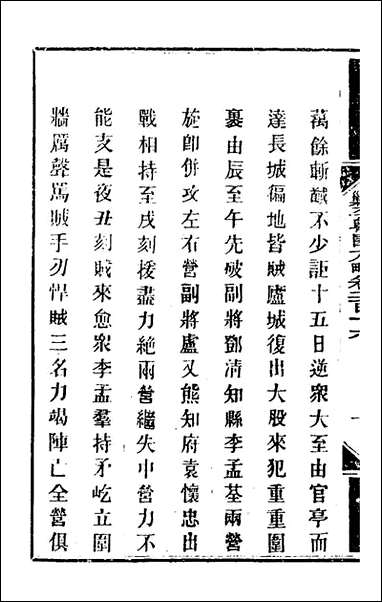 萬餘斬馘不少詎十五日逆衆大至由官亭而
達長城徧地皆賊廬城復出大股來犯重重圍
裹由辰至午先破副將鄧清知縣李孟基兩營
旋卽併攻左右營副將盧又熊知府袁懷忠由
戰相持至戌刻援盡力絶兩營繼失中營力不
能支是夜丑刻賊來愈衆李孟羣持矛屹立圍
牆厲聲罵賊手刃悍賊三名力竭陣亡全營俱